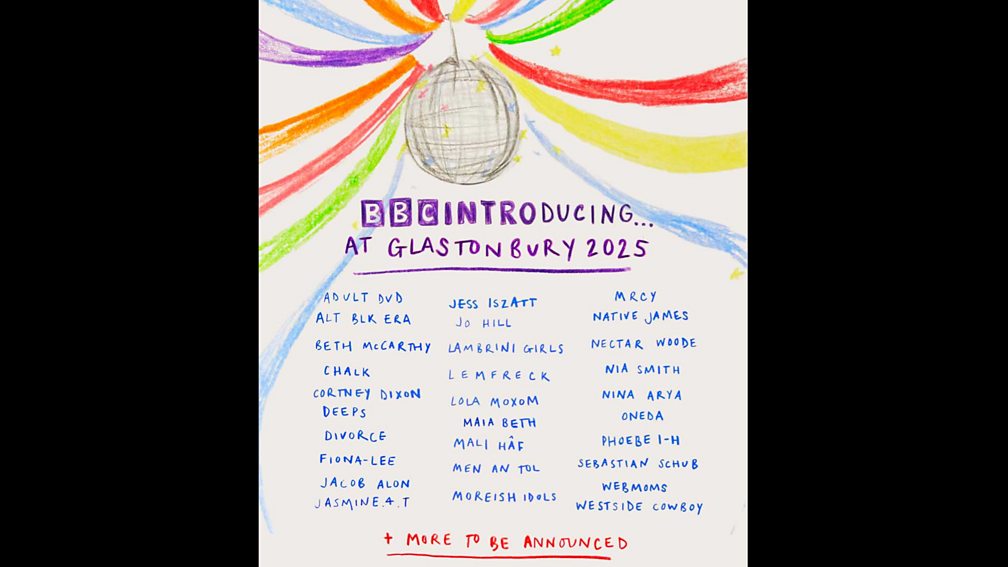 BBC INTRODUCING...
AT GLASTONBURY 2025
ADULT DVD
ALT BLK ERA
BETH McCARTHY
CHALK
CORTNEY DIXON
DEEPS
DIVORCE
FIONA-LEE
JACOB ALON
JASMINE.4.T
JESS ISZATT
JO HILL
LAMBRINI GIRLS
LEMFRECK
LOLA MOXOM
MAIA BETH
MALI HÂF
MEN AN TOL
MOREISH IDOLS
MRCY
NATIVE JAMES
NECTAR WOODE
NIA SMITH
NINA ARYA
ONEDA
PHOEBE I-H
SEBASTIAN SCHUB
WEBMOMS
WESTSIDE COWBOY
+ MORE TO BE ANNOUNCED